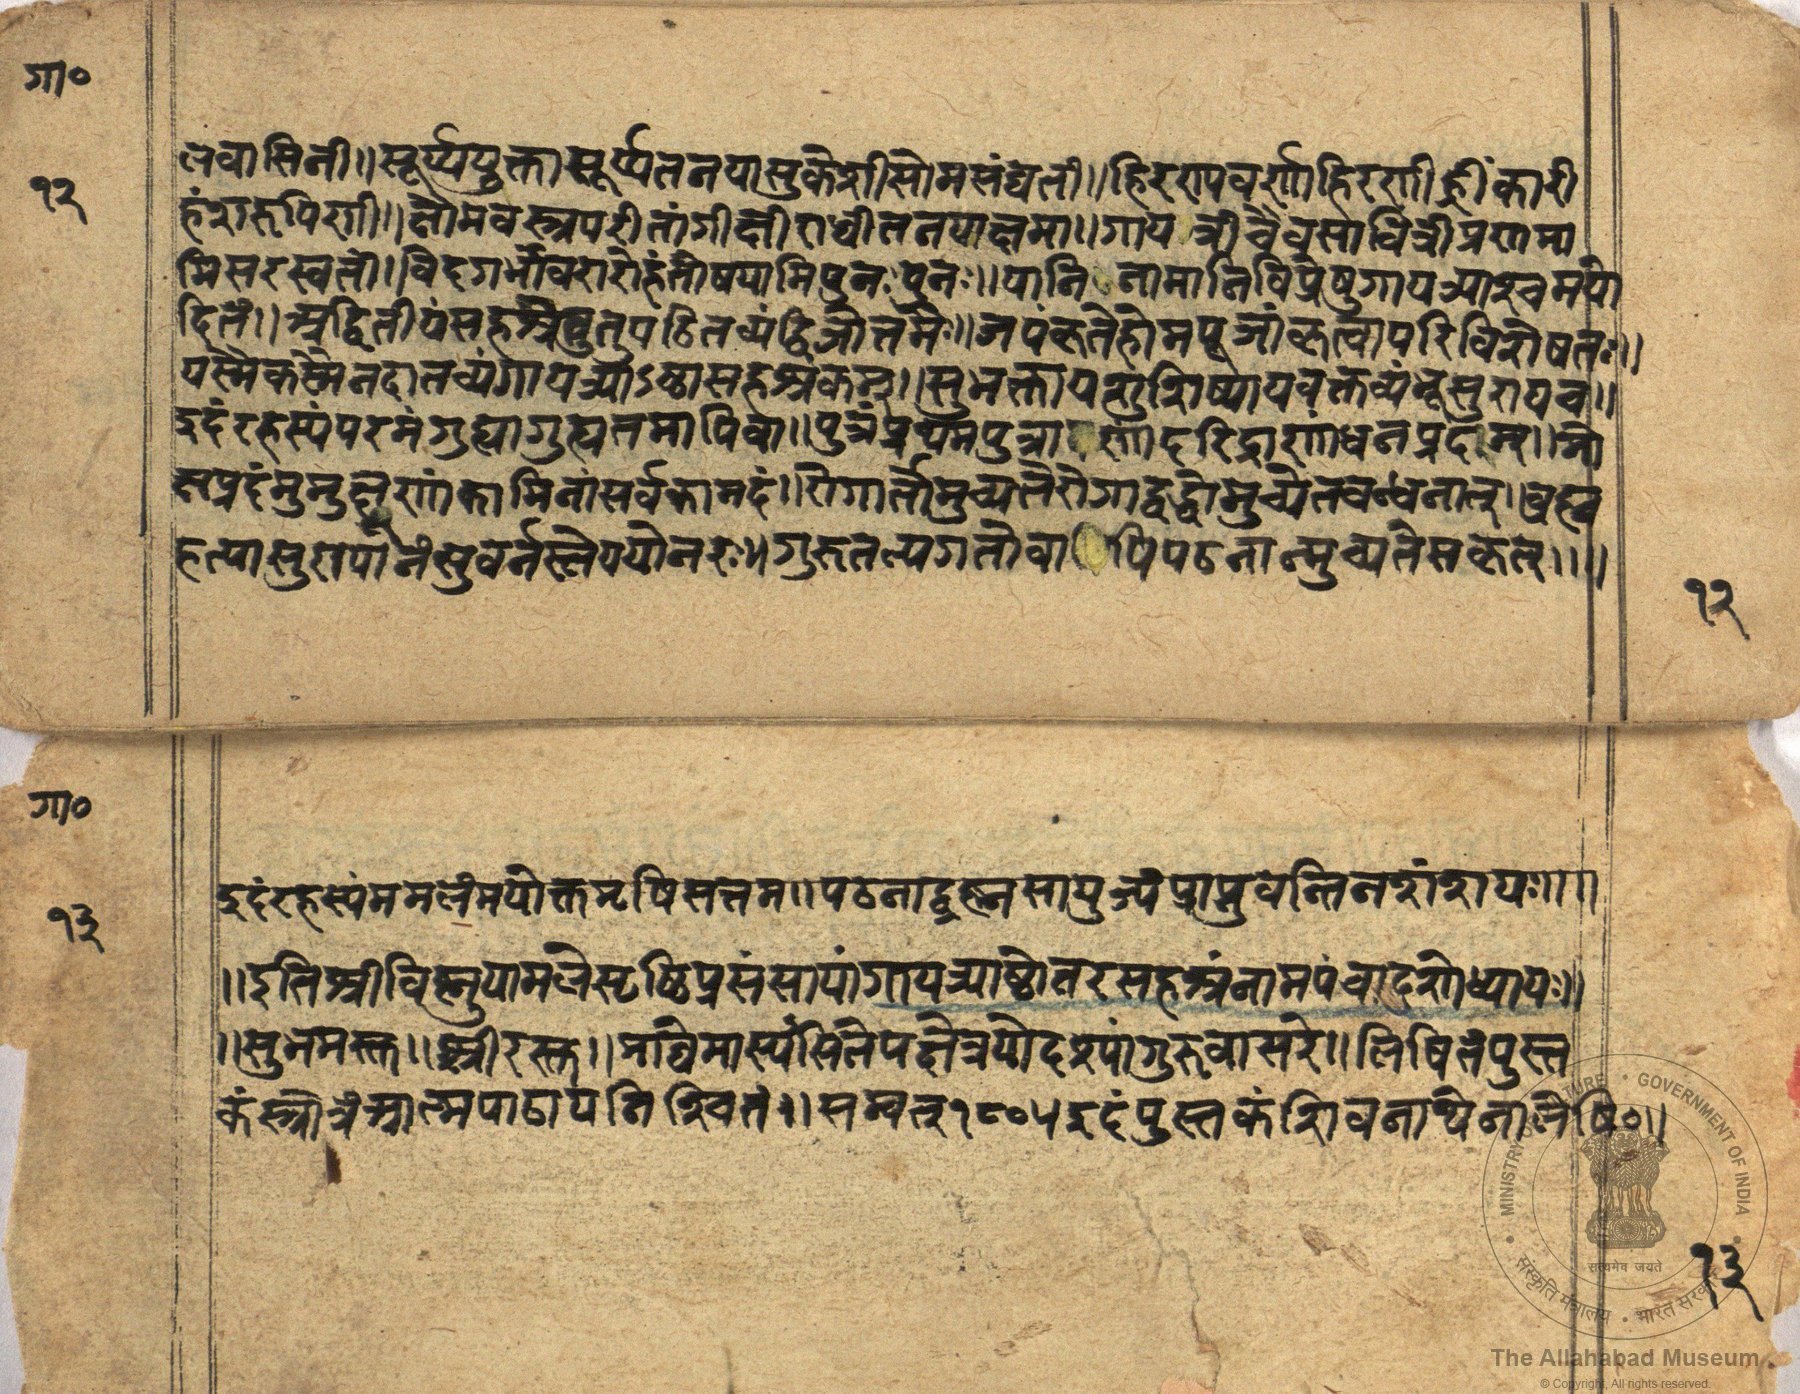 गा०
१२
लवासिनी॥सूर्य्ययुक्तासूर्य्यतनयासुकेशीसोमसंद्यती॥हिरण्यवर्णाहिरणीह्रींकारी
हंशरूपिणी॥क्षौमवस्त्रपरीतांगीक्षीराब्धीतनयाक्षमा॥गायत्रीचैवसावित्रीप्रणमा
मिसरस्वती॥वेदगर्भांवरारोहंतोषयामिपुनःपुनः॥यानिनामानिविप्रेषुगायत्र्याश्चमयो
दितं॥अद्वितीयंसहश्रैवुतत्पठितव्यंद्विजोत्तमैः॥जपंकृतेहोमपूजांकृत्वापरिविशेषतः॥
यस्मैकस्मैनदातव्यंगायत्र्याऽष्टासहश्रकम्॥सुभक्तायशुशिष्यायवक्तव्यंभूसुरायच॥
इदंरहस्यंपरमंगुह्यागुह्यतमापिवा॥पुत्रंप्रथमपुत्राणांदरिद्राणांधनप्रदम्॥मो
क्षप्रदंमुमुक्षूणांकामिनांसर्वकामदं॥रोगार्तोमुच्यतेरोगाद्वद्धोमुच्येतवन्धनात्॥व्रह्म
हत्यासुरापानंसुवर्नस्तेययोनरः॥गुरुतल्पगतोवापिपठनान्मुच्यतेसकृत्॥॥
१२
गा०
१३
इदंरहस्यंममलंमयोक्तमृषिसत्तम॥पठनाद्व्रह्मसायुज्यंप्राप्नुवन्तिनशंशयः॥॥
॥इतिश्रीविष्नुयामलेसृष्ठिप्रसंसायांगायत्र्याष्टोतरसहश्रंनामपंचादशोध्यायः॥
॥सुभमस्त॥श्रीरस्त॥माघेमास्यंसितेपक्षेत्रयोदश्यांगुरुवासरे॥लिषितंपुस्त
कंस्त्रोत्रंआत्मपाठायनिश्चितं॥सम्वत्१९०५इदंपुस्तकंशिवनाथेनालेषि०॥
१३
MINISTRY OF CULTURE • GOVERNMENT OF INDIA
सत्यमेव जयते
संस्कृति मंत्रालय • भारत सरकार
The Allahabad Museum
© Copyright, All rights reserved.